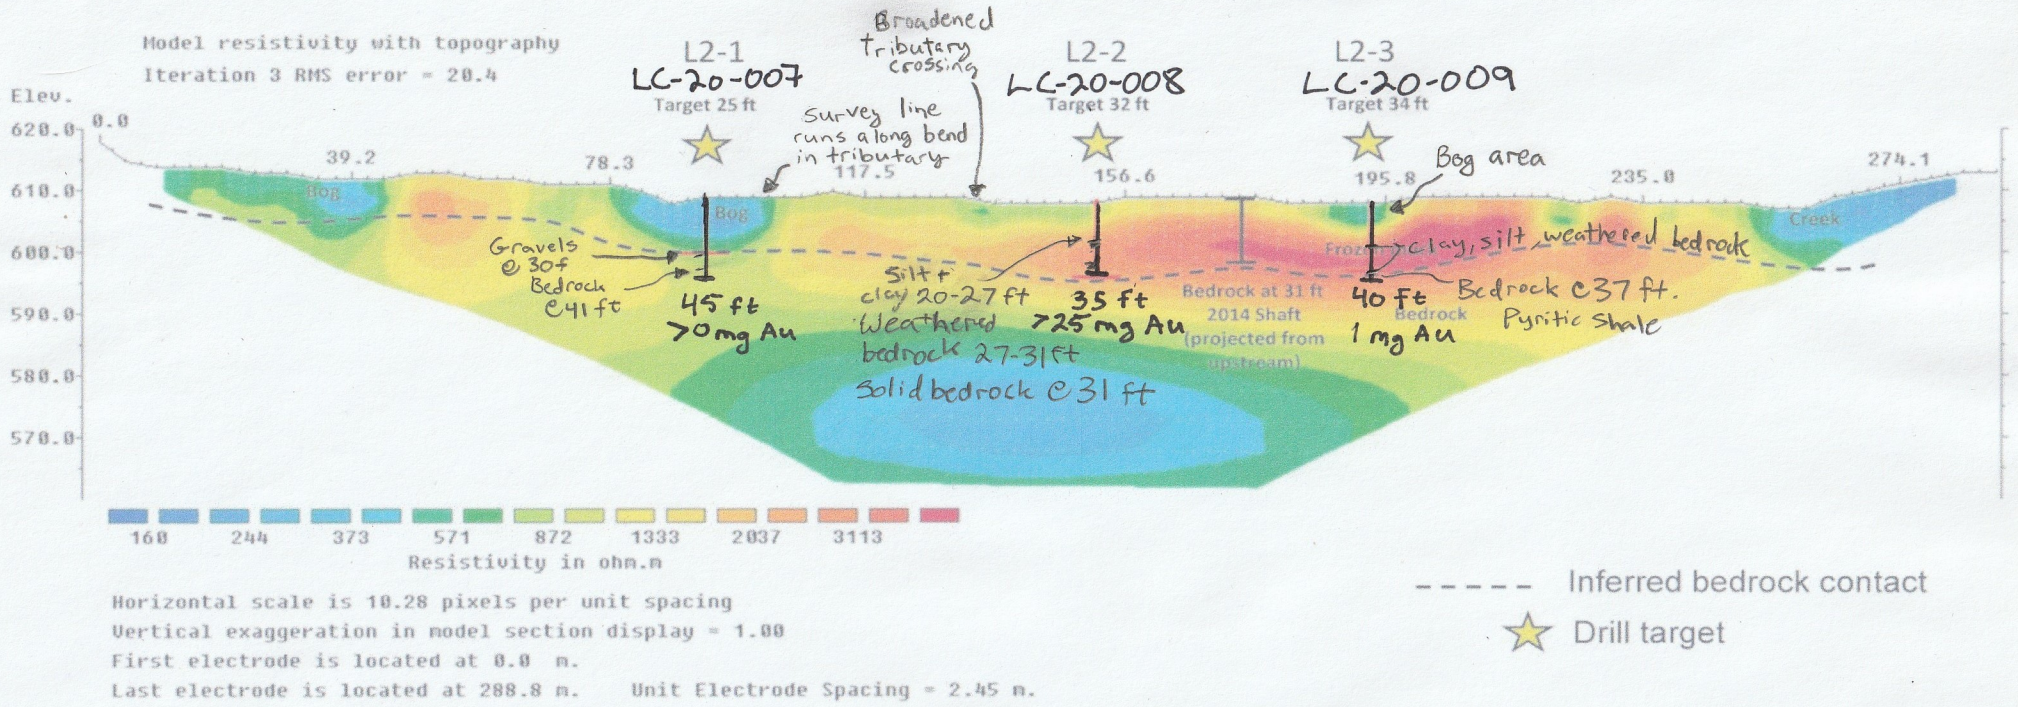 Model resistivity with topography
Iteration 3 RMS error = 20.4
Elev.
620.0
610.0
600.0
590.0
580.0
570.0
0.0
39.2
78.3
117.5
156.6
195.8
235.0
274.1
L2-1
LC-20-007
Target 25 ft
Survey line
runs along bend
in tributary
Broadened
tributary
crossing
L2-2
LC-20-008
Target 32 ft
L2-3
LC-20-009
Target 34 ft
Bog area
Bog
Bog
Creek
Gravels
@ 30f
Bedrock
@41 ft
45 ft
>0mg Au
Silt +
clay 20-27 ft
Weathered
bedrock 27-31ft
Solid bedrock @ 31 ft
35 ft
>25 mg Au
Bedrock at 31 ft
2014 Shaft
(projected from
upstream)
clay, silt, weathered bedrock
40 ft
Bedrock
1 mg Au
Bedrock @37 ft.
Pyritic Shale
160 244 373 571 872 1333 2037 3113
Resistivity in ohm.m
Horizontal scale is 10.28 pixels per unit spacing
Vertical exaggeration in model section display = 1.00
First electrode is located at 0.0 m.
Last electrode is located at 288.8 m. Unit Electrode Spacing = 2.45 m.
Inferred bedrock contact
Drill target